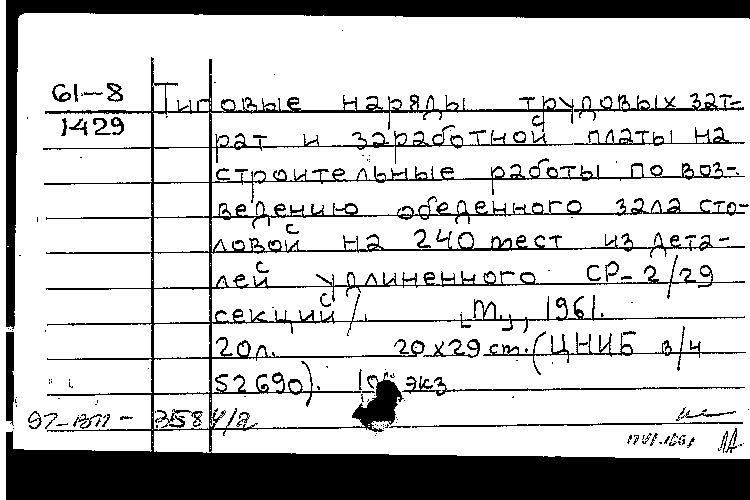 61-8
1429
Типовые наряды трудовых зат=
рат и заработной платы на
строительные работы по воз-
ведению обеденного зала сто-
ловой на 240 мест из дета-
лей удлиненного СР-2/29
секций/. [М.], 1961.
20л. 20х29 см. (ЦНИБ в/ч
52690). экз
97-ВП-3158 4/2